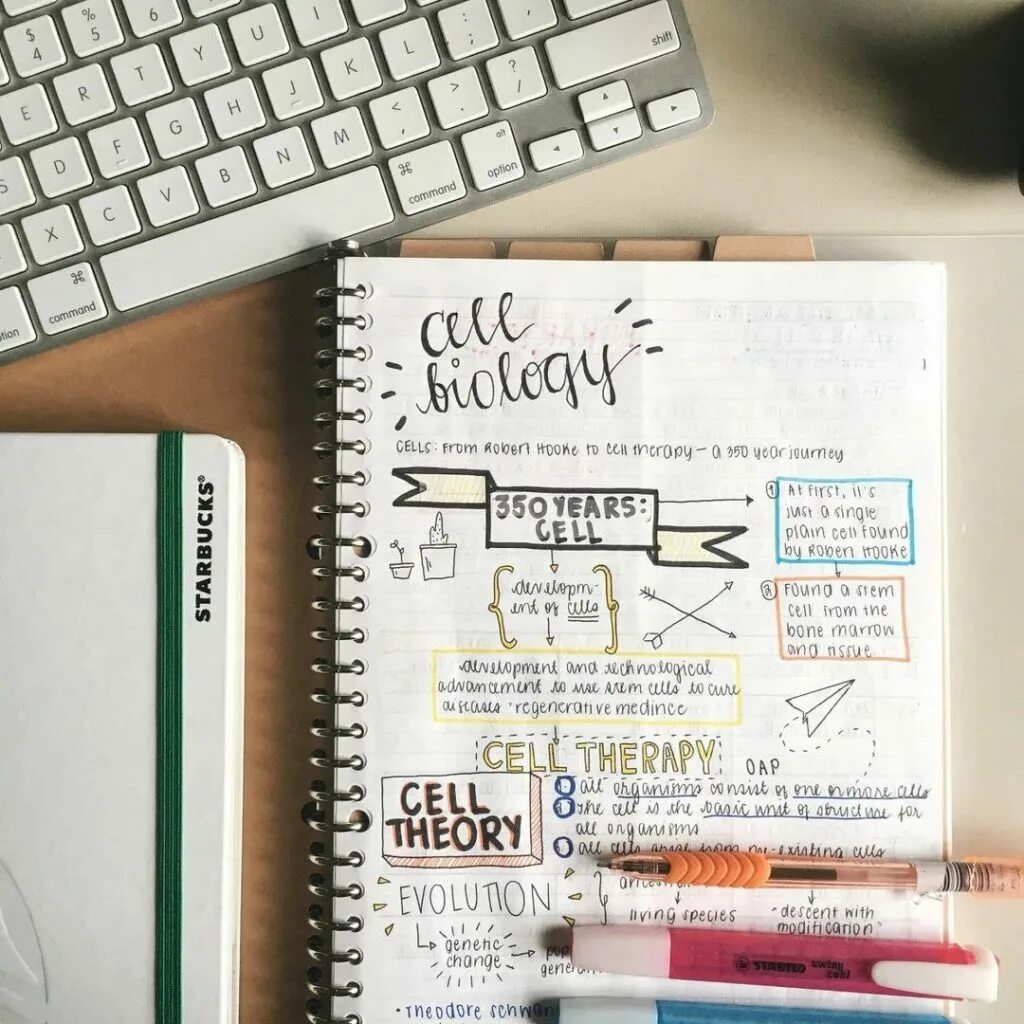 $ 4
% 5
6
7
E R T Y U I
S D F G H J K L : ;
X C V B N M < , > . ? /
shift
command
option
alt
option
command
STARBUCKS®
cell
biology
CELLS: From Robert Hooke to cell therapy – a 350 year journey
350 YEARS:
CELL
1 At first, it's
just a single
plain cell found
by Robert Hooke
2 Found a stem
cell from the
bone marrow
and tissue.
developm-
ent of cells
development and technological
advancement to use stem cells to cure
diseases · regenerative medince
CELL THERAPY
OAP
CELL
THEORY
all organisms consist of one or more cells
the cell is the basic unit of structure for
all organisms
all cells arise from pre-existing cells
EVOLUTION
living species
"descent with
modification"
genetic
change
STABILO swing cool
• Theodore Schwan